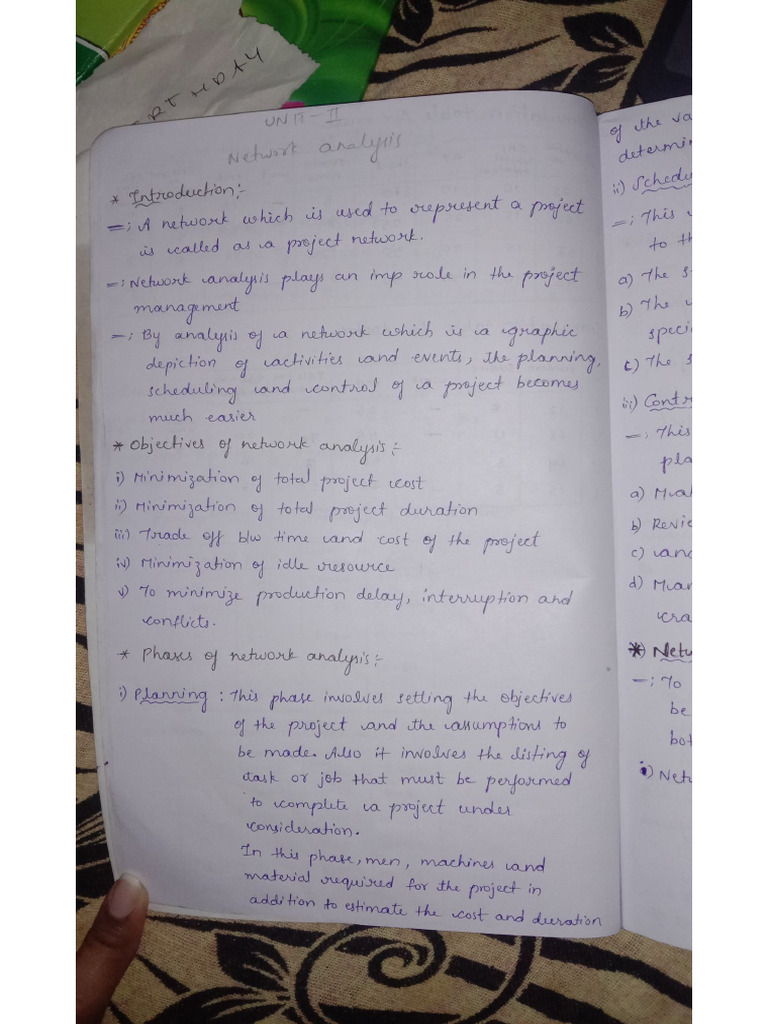 UNIT-II
Network analysis
* Introduction:-
=; A network which is used to represent a project
is called as a project network.
=; Network analysis plays an imp role in the project
management
=; By analysis of a network which is a graphic
depiction of activities and events, the planning,
scheduling and control of a project becomes
much easier
* Objectives of network analysis:-
i) Minimization of total project cost
ii) Minimization of total project duration
iii) Trade off b/w time and cost of the project
iv) Minimization of idle resource
v) To minimize production delay, interruption and
conflicts.
* Phases of network analysis:-
i) Planning : This phase involves setting the objectives
of the project and the assumptions to
be made. Also it involves the listing of
task or job that must be performed
to complete a project under
consideration.
In this phase, men, machines and
material required for the project in
addition to estimate the cost and duration
of the va
determin
ii) Schedu
=; This
to th
a) The s
b) The
speci
c) The s
iii) Contr
=; This
pla
a)
b) Revie
c) and
d)
* Netw
=; To
be
bot
i) Netw